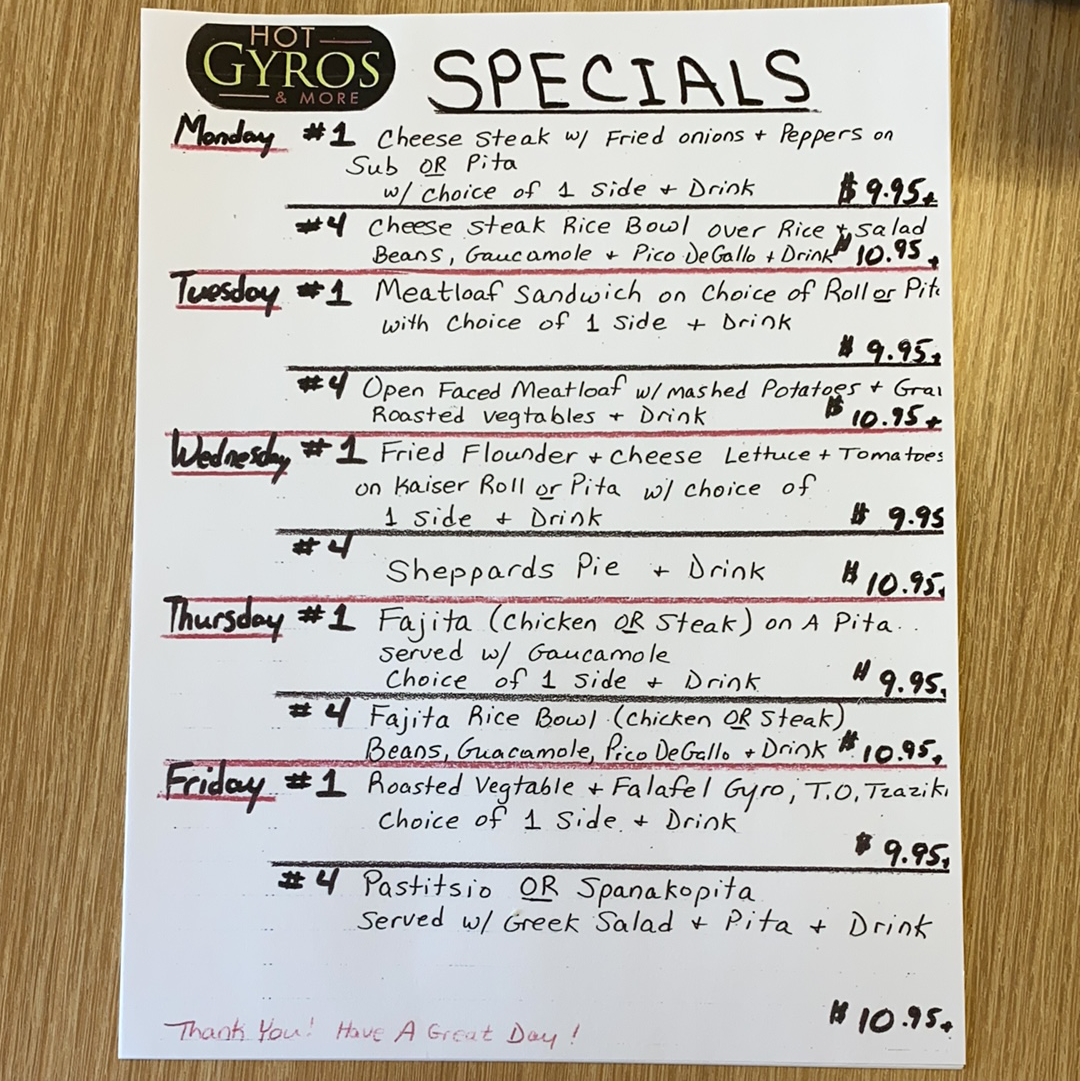 HOT
GYROS
& MORE
SPECIALS
Monday #1 Cheese Steak w/ Fried onions + Peppers on
Sub OR Pita
w/ Choice of 1 Side + Drink $ 9.95+
#4 Cheese Steak Rice Bowl over Rice + Salad
Beans, Gaucamole + Pico DeGallo + Drink $ 10.95+
Tuesday #1 Meatloaf Sandwich on Choice of Roll or Pit
with Choice of 1 Side + Drink
$ 9.95+
#4 Open Faced Meatloaf w/ mashed Potatoes + Gra
Roasted Vegtables + Drink $ 10.95+
Wednesday #1 Fried Flounder + Cheese Lettuce + Tomatoes
on Kaiser Roll or Pita w/ choice of
1 Side + Drink $ 9.95
#4
Sheppards Pie + Drink $ 10.95+
Thursday #1 Fajita (Chicken OR Steak) on A Pita..
Served w/ Gaucamole
Choice of 1 Side + Drink $ 9.95+
#4 Fajita Rice Bowl (Chicken OR Steak)
Beans, Guacamole, Pico DeGallo + Drink $ 10.95+
Friday #1 Roasted Vegtable + Falafel Gyro, T.O, Tzaziki
Choice of 1 Side + Drink
$ 9.95+
#4 Pastitsio OR Spanakopita
Served w/ Greek Salad + Pita + Drink
$ 10.95+
Thank You! Have A Great Day!